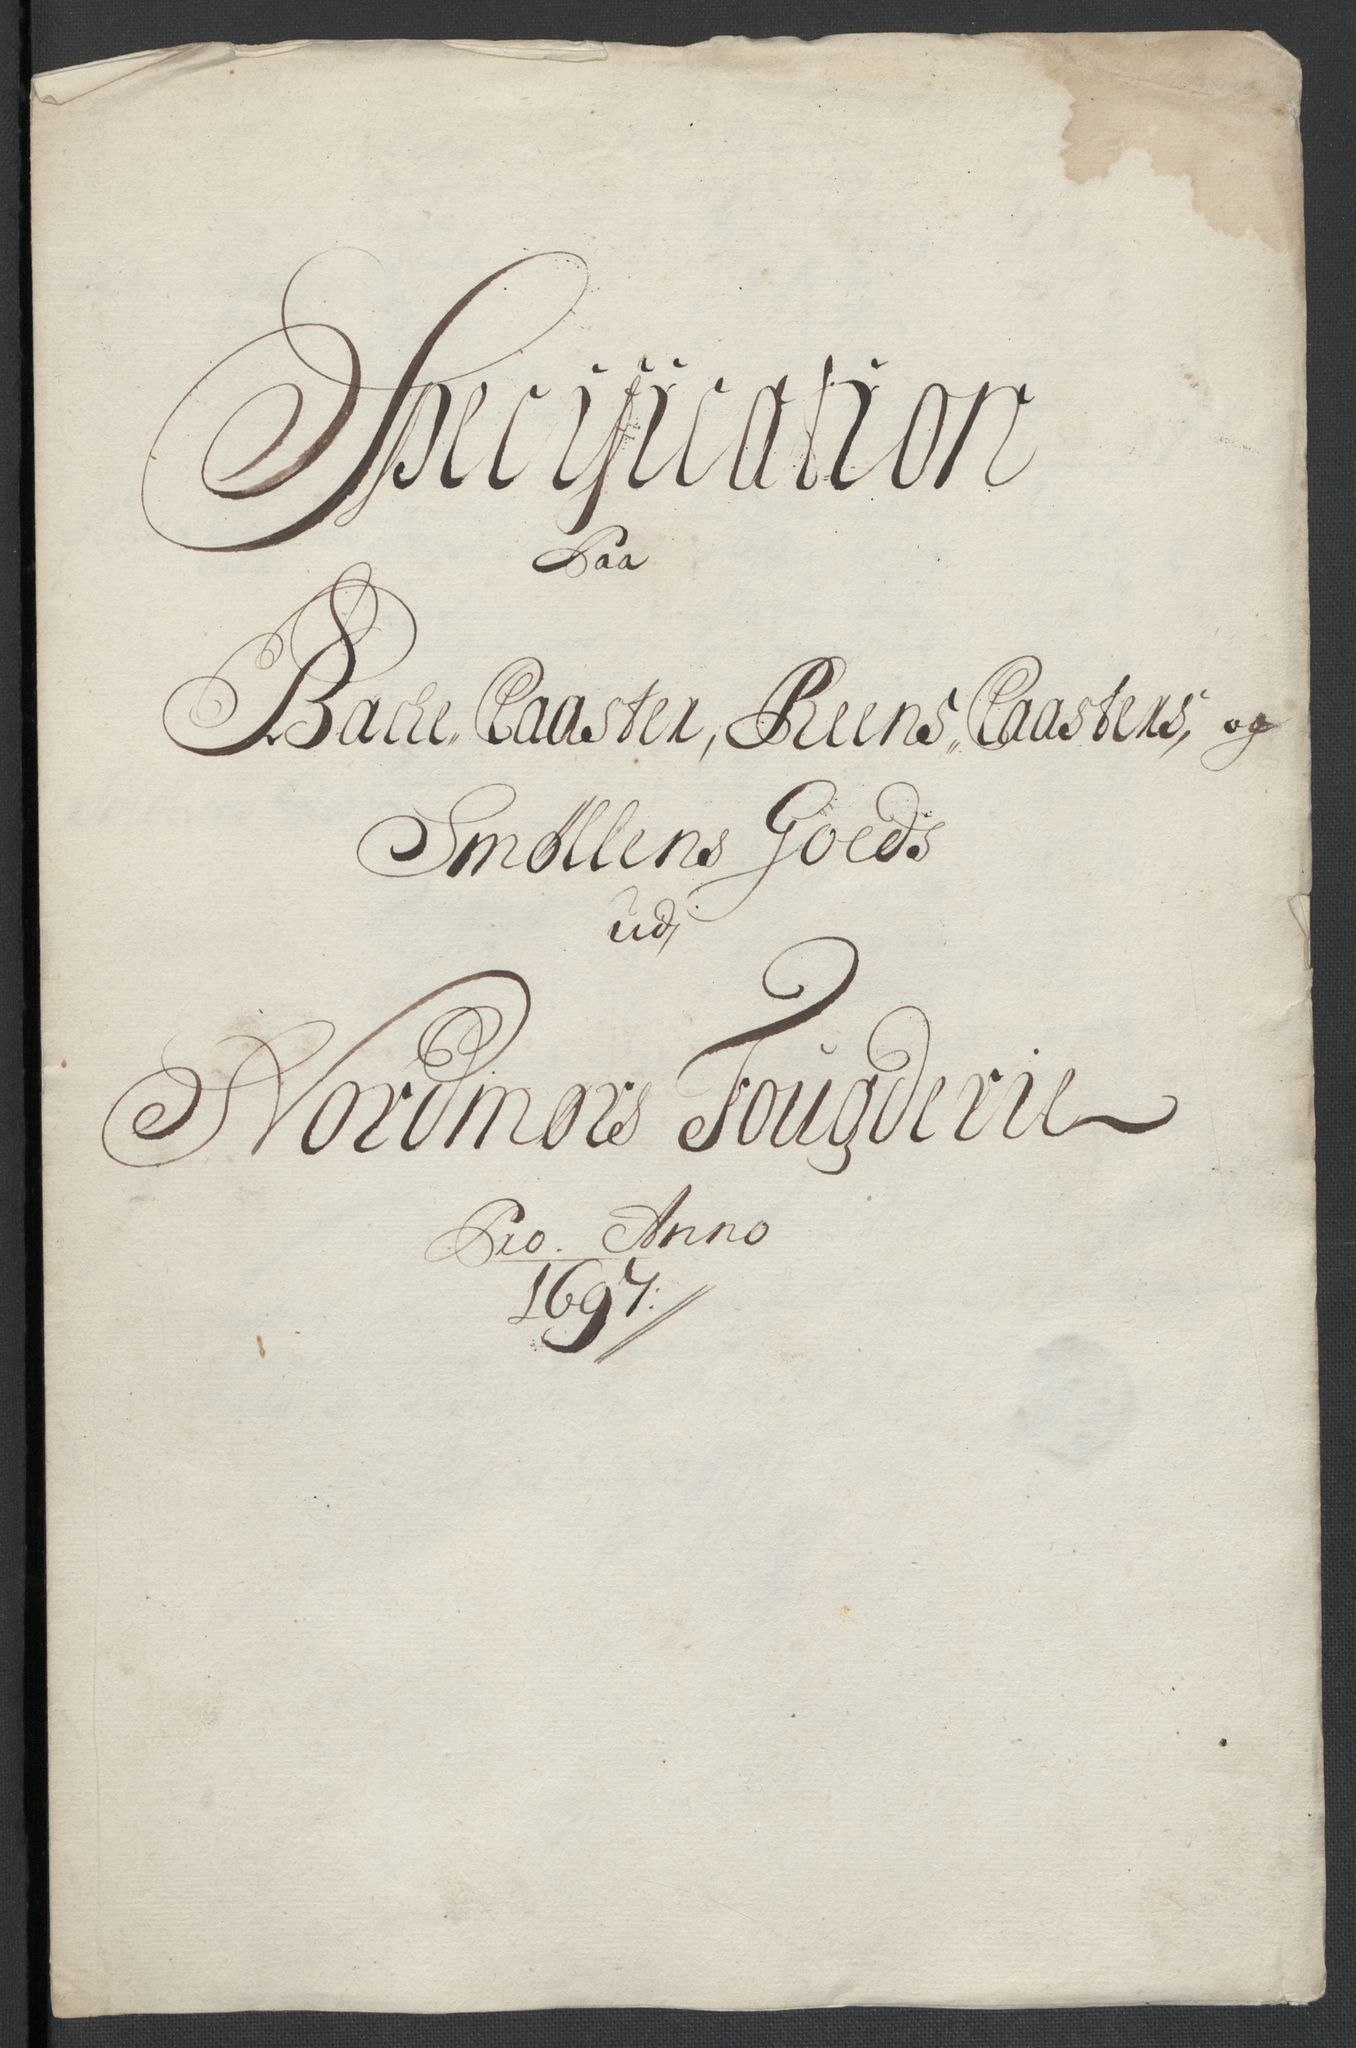 Specification
Paa
Bache Claaster, Reens Claasters, og
Smøllens Goeds
udj
Nordmørs Fougderie
Pro. Anno
1697.